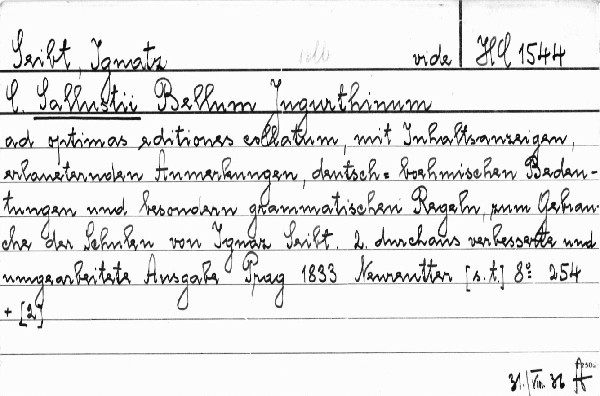 Seibt, Ignatz vide HC 1544
C. Sallustii Bellum Jugurthinum
ad optimas editiones collatum, mit Inhaltsanzeigen,
erlaeuternden Anmerkungen, deutsch=boehmischen Bedeu-
tungen und besondern grammatischen Regeln, zum Gebrau-
che der Schulen von Ignaz Seibt. 2. durchaus verbesserte und
umgearbeitete Ausgabe Prag 1833 Neureutter [s.t.] 8º 254
+ [2]
31./VIII. 36